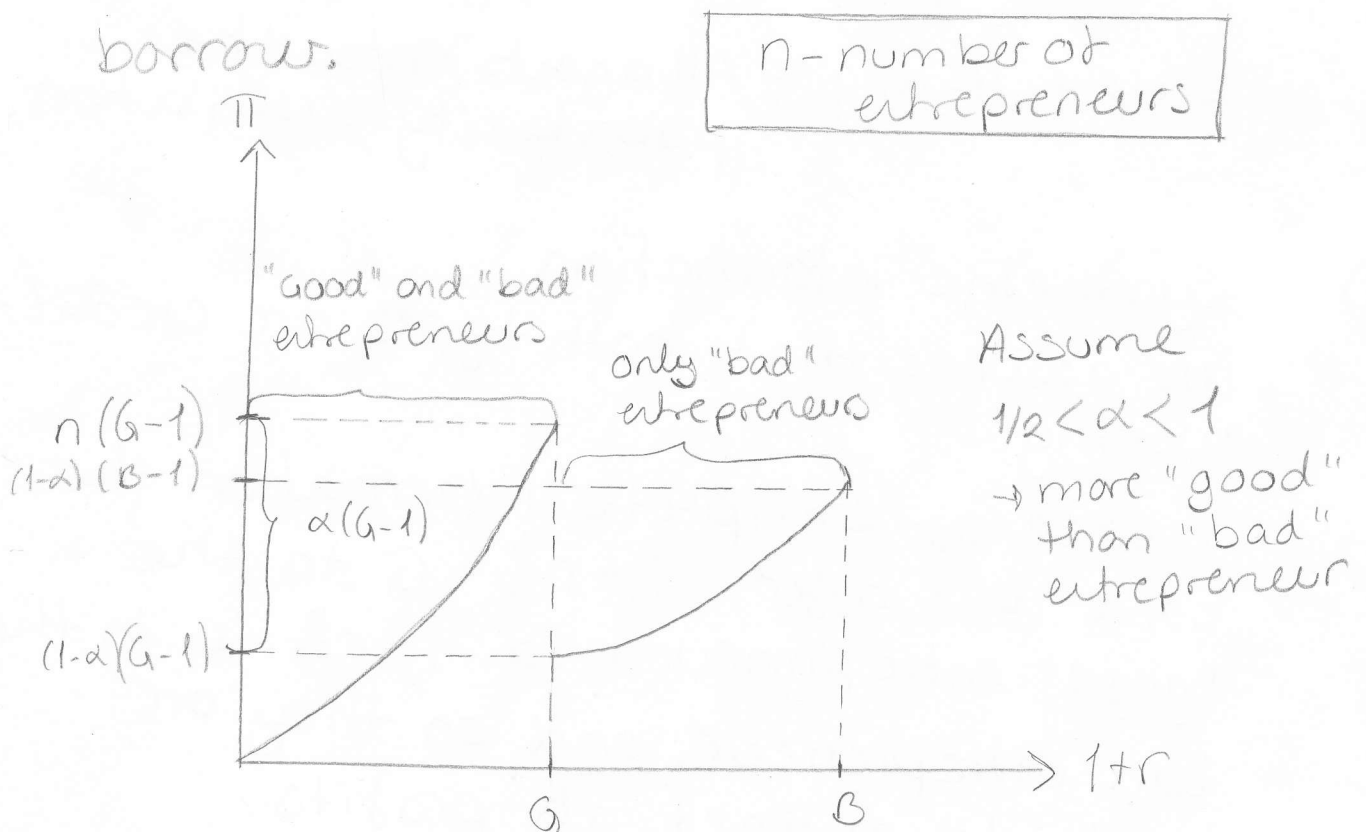 borrow.
n-number of
entrepreneurs
π
"Good" and "bad"
entrepreneurs
only "bad"
entrepreneurs
Assume
1/2 < α < 1
→ more "good"
than "bad"
entrepreneur
n(G-1)
(1-α)(B-1)
α(G-1)
(1-α)(G-1)
1+r
G
B